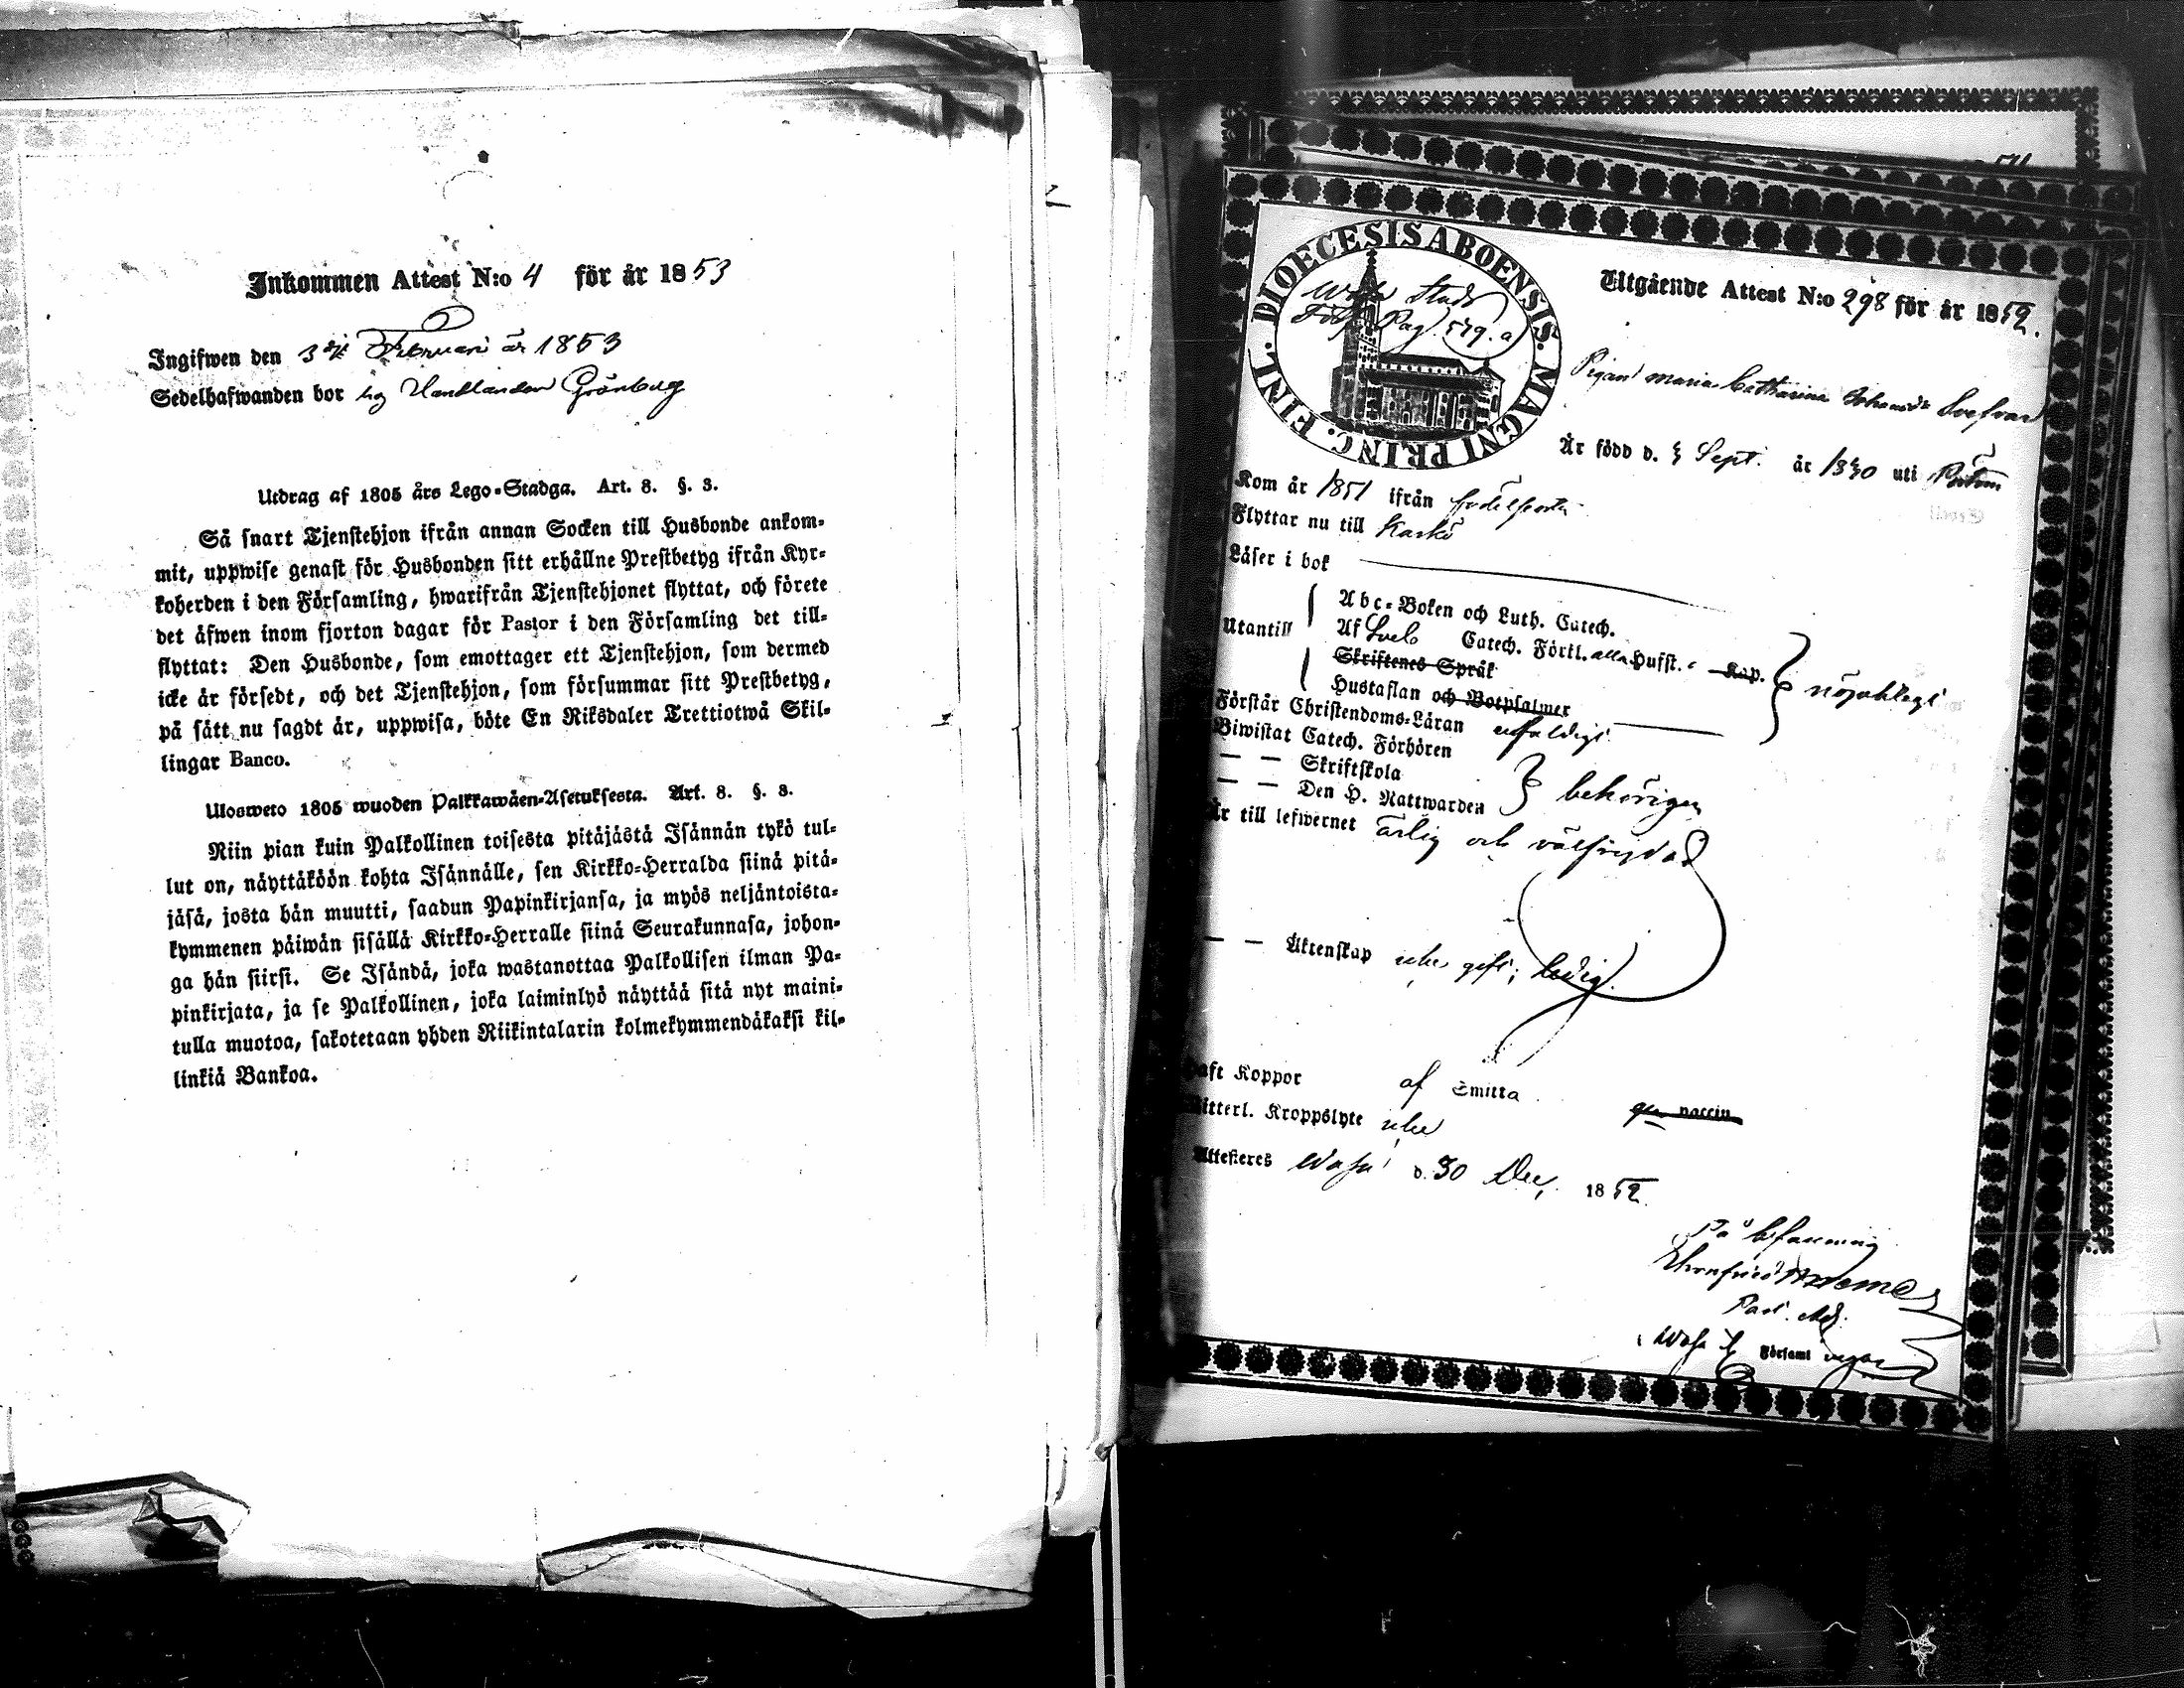 Inkommen Attest N:o 4 för år 1853
Ingifwen den 3 Februari år 1853
Sedelhafwanden bor hos Handlanden Grönberg
Utdrag af 1805 års Lego-Stadga. Art. 8. §. 3.
Så snart Tjenstehjon ifrån annan Socken till Husbonde ankom-
mit, uppwise genast för Husbonden sitt erhållne Prestbetyg ifrån Kyr-
koherden i den Församling, hwarifrån Tjenstehjonet flyttat, och förete
det äfwen inom fjorton dagar för Pastor i den Församling det till-
flyttat: Den Husbonde, som emottager ett Tjenstehjon, som dermed
icke är försedt, och det Tjenstehjon, som försummar sitt Prestbetyg,
på sätt nu sagdt är, uppwisa, böte En Riksdaler Trettiotwå Skil-
lingar Banco.
Ulosweto 1805 wuoden Palkkawäen-Asetuksesta. Art. 8. §. 3.
Niin pian kuin Palkollinen toisesta pitäjästä Isännän tykö tul-
lut on, näyttäköön kohta Isännälle, sen Kirkko-Herralda siinä pitä-
jäsä, josta hän muutti, saadun Papinkirjansa, ja myös neljäntoista-
kymmenen päiwän sisällä Kirkko-Herralle siinä Seurakunnasa, johon-
ga hän siirsi. Se Isändä, joka wastanottaa Palkollisen ilman Pa-
pinkirjata, ja se Palkollinen, joka laiminlyö näyttää sitä nyt maini-
tulla muotoa, sakotetaan yhden Riikintalarin kolmekymmendäkaksi kil-
linkiä Bankoa.
DIOECESIS ABOENSIS. MAGNI PRINC. FINL.
Wasa Stads
Pag. 579. a
Utgående Attest N:o 298 för år 1852.
Pigan Maria Catharina
Är född d. Sept. år 1830 uti
Kom år 1851 ifrån
Flyttar nu till Kaskö
Läser i bok
Utantill
Abc-Boken och Luth. Catech.
Af Sveb Catech. Förkl. alla Hufst. Kap.
Skriftenes Språk
Hustaflan och Botpsalmer
nöjaktigt
Förstår Christendoms-Läran
Biwistat Catech. Förhören
— — Skriftskola
— — Den H. Nattwarden
behörigen
Är till lefwernet ärlig och välfrejdad
— — Äktenskap icke gift; ledig.
Haft Koppor af Smitta vaccin
Witterl. Kroppslyte icke
Attesteres Wasa d. 30 Dec. 1852
På befallning
Past. Adj.
Wasa Församl